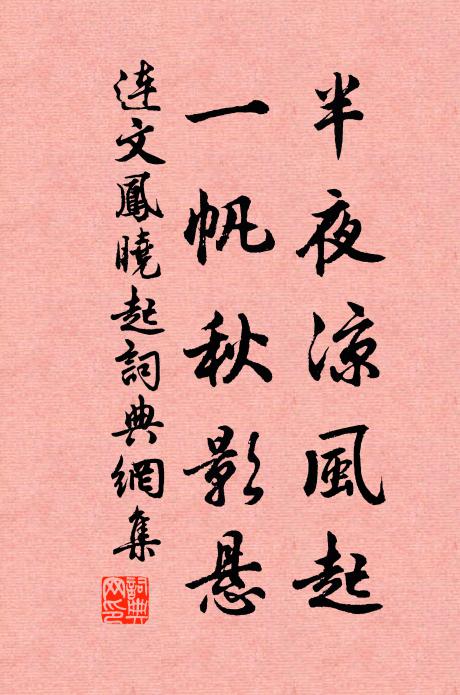 半夜涼風起
一帆秋影悬
連文鳳曉起詞典網集
詞典網印